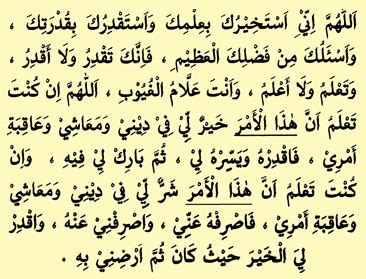 اَللّٰهُمَّ اِنِّيْ اَسْتَخِيْرُكَ بِعِلْمِكَ وَاَسْتَقْدِرُكَ بِقُدْرَتِكَ ،
وَاَسْئَلُكَ مِنْ فَضْلِكَ الْعَظِيْمِ ، فَاِنَّكَ تَقْدِرُ وَلَا أَقْدِرُ ،
وَتَعْلَمُ وَلَا أَعْلَمُ ، وَاَنْتَ عَلَّامُ الْغُيُوْبِ ، اَللّٰهُمَّ اِنْ كُنْتَ
تَعْلَمُ اَنَّ هٰذَا الْأَمْرَ خَيْرٌ لِّيْ فِيْ دِيْنِيْ وَمَعَاشِيْ وَعَاقِبَةِ
أَمْرِيْ ، فَاقْدِرْهُ وَيَسِّرْهُ لِيْ ، ثُمَّ بَارِكْ لِيْ فِيْهِ ، وَاِنْ
كُنْتَ تَعْلَمُ اَنَّ هٰذَا الْأَمْرَ شَرٌّ لِّيْ فِيْ دِيْنِيْ وَمَعَاشِيْ
وَعَاقِبَةِ أَمْرِيْ ، فَاصْرِفْهُ عَنِّيْ ، وَاصْرِفْنِيْ عَنْهُ ، وَاقْدِرْ
لِيَ الْخَيْرَ حَيْثُ كَانَ ثُمَّ اَرْضِنِيْ بِهِ .